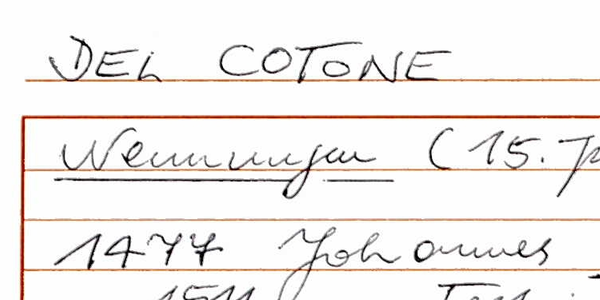 DEL COTONE
Nennungen (15. J
1477 Johannes
1511